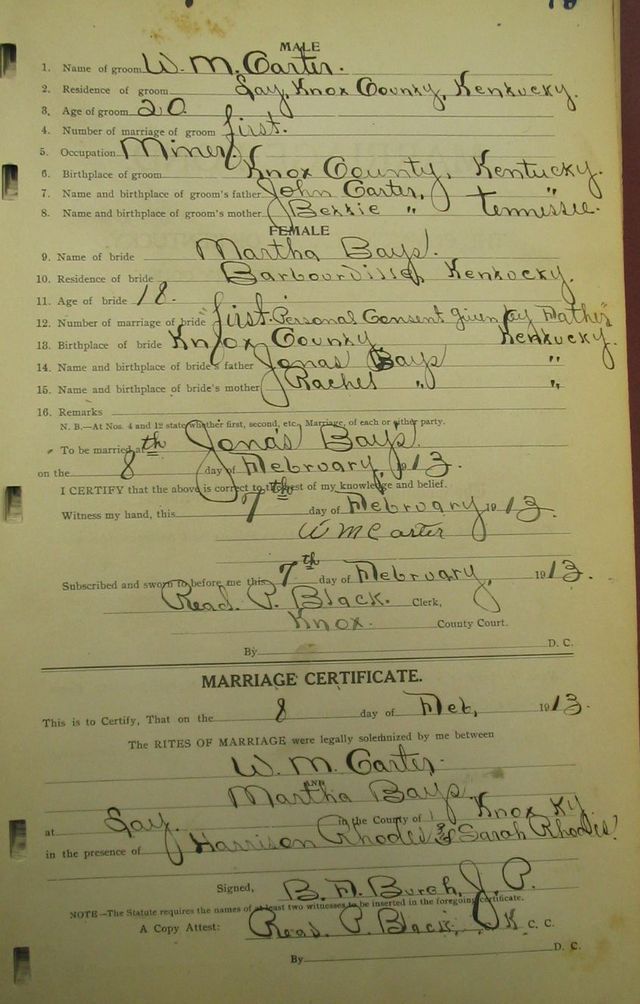 MALE
1. Name of groom W. M. Carter.
2. Residence of groom Gay, Knox County, Kentucky.
3. Age of groom 20
4. Number of marriage of groom first.
5. Occupation Miner
6. Birthplace of groom Knox County, Kentucky.
7. Name and birthplace of groom's father John Carter, "
8. Name and birthplace of groom's mother Bettie " Tennessee.
FEMALE
9. Name of bride Martha Bays.
10. Residence of bride Barbourville, Kentucky.
11. Age of bride 18.
12. Number of marriage of bride first. Personal Consent given by Father
13. Birthplace of bride Knox County Kentucky.
14. Name and birthplace of bride's father Jonas Bays "
15. Name and birthplace of bride's mother Rachel " "
16. Remarks
N. B.—At Nos. 4 and 12 state whether first, second, etc., Marriage, of each or either party.
To be married at Jonas Bays.
on the 8th day of February, 1913.
I CERTIFY that the above is correct to the best of my knowledge and belief.
Witness my hand, this 7th day of February 1913.
W M Carter
Subscribed and sworn to before me this 7th day of February, 1913.
Read P. Black. Clerk,
Knox. County Court.
By D. C.
MARRIAGE CERTIFICATE.
This is to Certify, That on the 8 day of Feb, 1913.
The RITES OF MARRIAGE were legally solemnized by me between
W. M. Carter.
AND
Martha Bays
at Gay. in the County of Knox Ky.
in the presence of Harrison Rhodes & Sarah Rhodes.
Signed, B. F. Burch, J. P.
NOTE—The Statute requires the names of at least two witnesses to be inserted in the foregoing certificate.
A Copy Attest: Read P. Black, C. C.
By D. C.